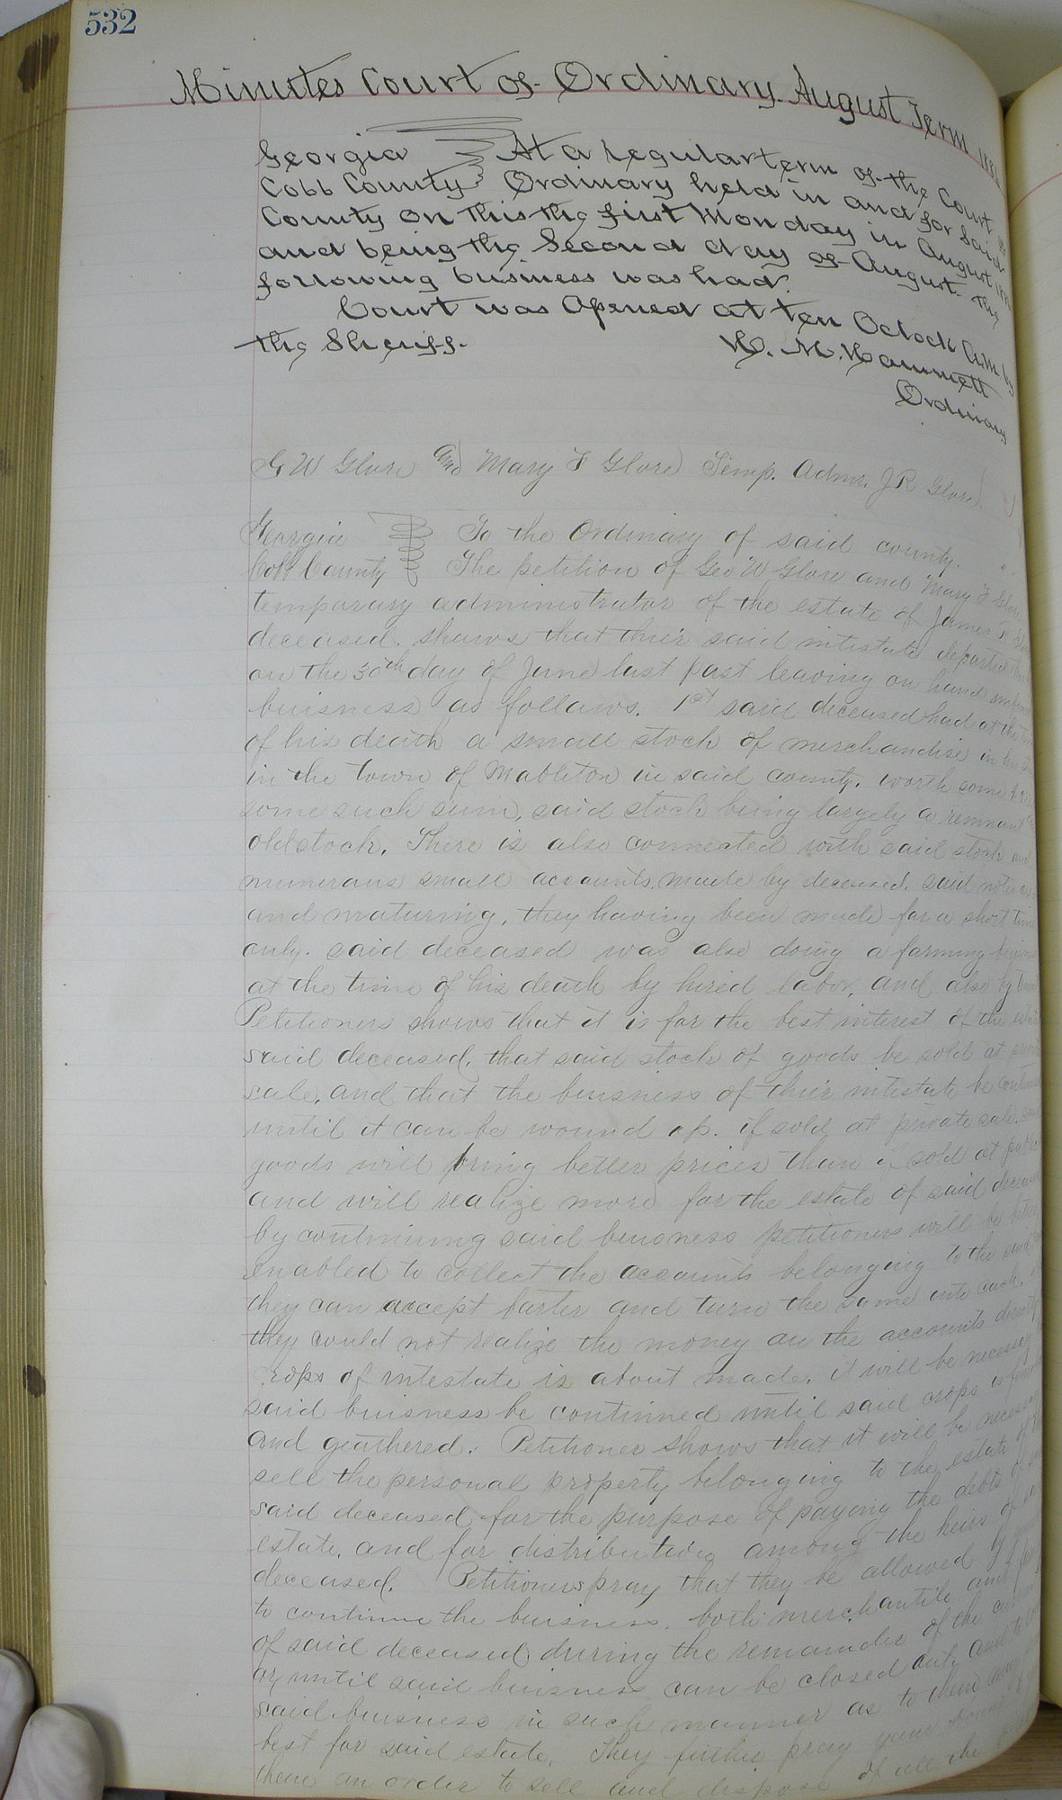 532
Minutes Court of Ordinary August Term
Georgia At a regular term of the Court
Cobb County Ordinary held in and for said
County on this the first Monday in August
and being the Second day of August. The
following business was had.
Court was Opened at ten Oclock A.M. by
the Sheriff.
H. M. Hammett
Ordinary
G W Glore and Mary F Glore Temp. Admr. J R Glore
Georgia To the Ordinary of said county.
Cobb County The petition of Geo W Glore and Mary F Glore
temporary administrator of the estate of James R
deceased. shows that their said intestate departed
on the 30th day of June last past leaving on hand
buisness as follows. 1st said deceased had at the
of his death a small stock of merchandise in
in the town of Mableton in said county. worth some
some such sum, said stock being largely a remnant
old stock. There is also connected with said stock
numerous small accounts made by deceased. said notes
and maturing, they having been made for a short time
only. said deceased was also doing a farming
at the time of his death by hired labor, and also by
Petitioners shows that it is for the best interest of the
said deceased, that said stock of goods be sold at
sale, and that the buisness of their intestate be
until it can be wound up. if sold at private sale.
goods will bring better prices than if sold at
and will realize more for the estate of said
by continuing said buisness petitioners will be
enabled to collect the accounts belonging to the
they can accept barter and turn the same into cash.
they could not realize the money on the accounts
crops of intestate is about made. it will be necessary
said buisness be continued until said crops is
and geathered. Petitioner shows that it will be
sell the personal property belonging to the estate of
said deceased for the purpose of paying the debts of
estate, and for distributing among the heirs of
deceased. Petitioners pray that they be allowed
to continue the buisness. both merchantile and
of said deceased during the remainder of the
or until said buisness can be closed out and to
said buisness in such manner as to them
best for said estate. They further pray your
them an order to sell and dispose of all the